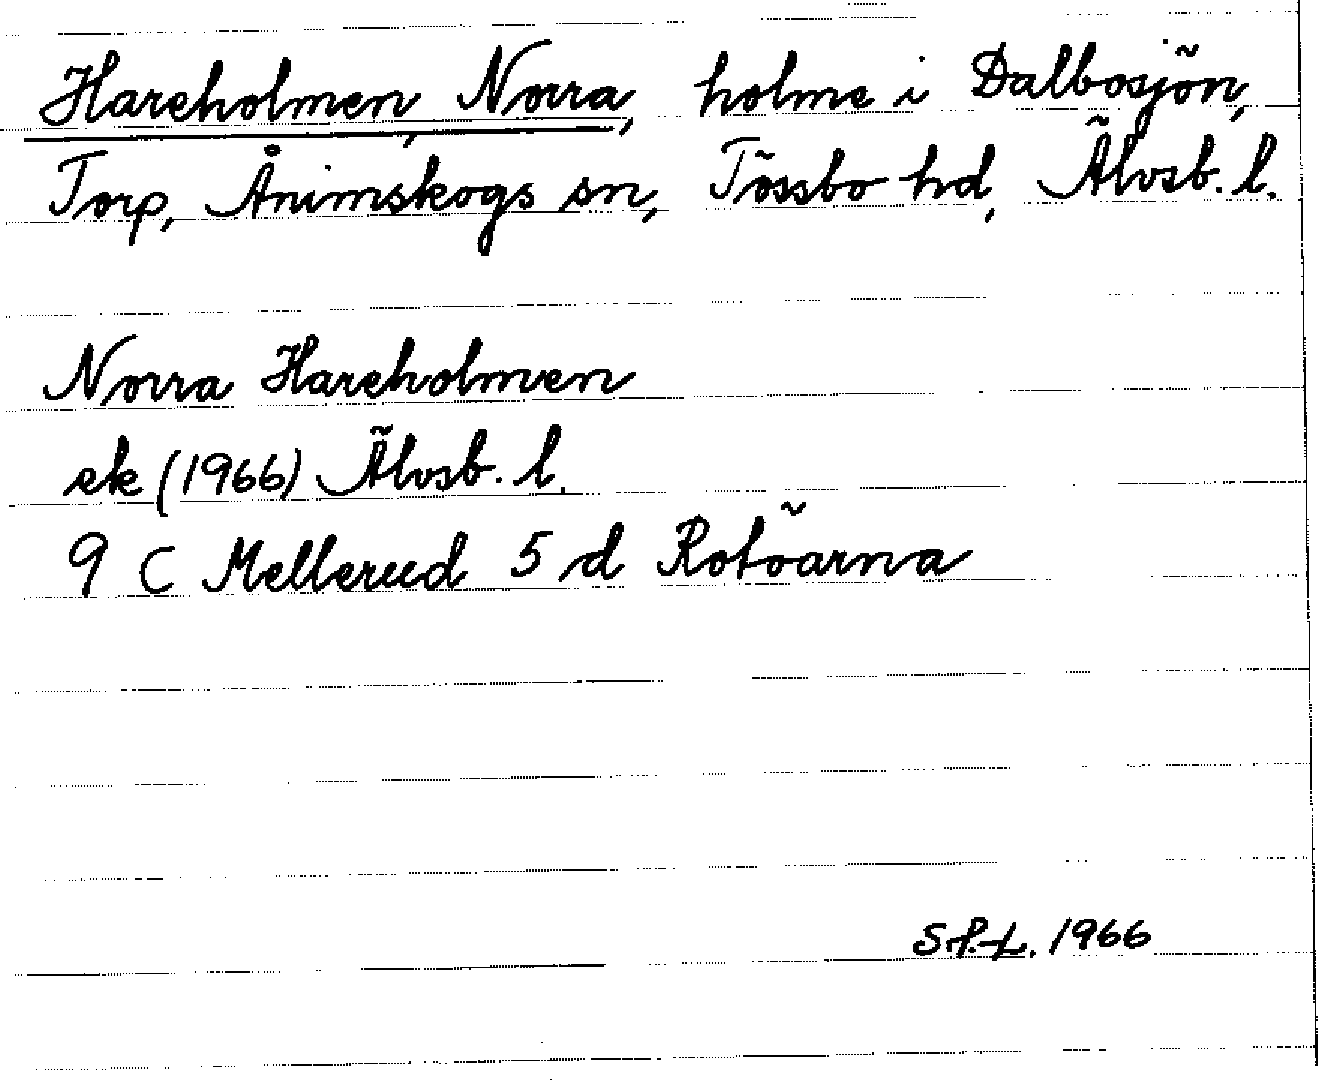 Hareholmen, Norra, holme i Dalbosjön,
Torp, Ånimskogs sn, Tössbo hd, Älvsb. l.
Norra Hareholmen
ek (1966) Älvsb. l.
9 C Mellerud 5 d Rotöarna
S P.-L. 1966